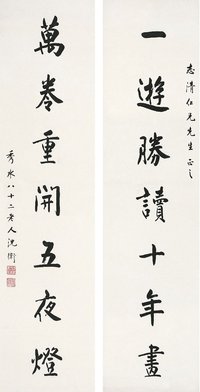 志清仁兄先生正之
一遊勝讀十年書
萬卷重開五夜燈
秀水八十二老人沈衛